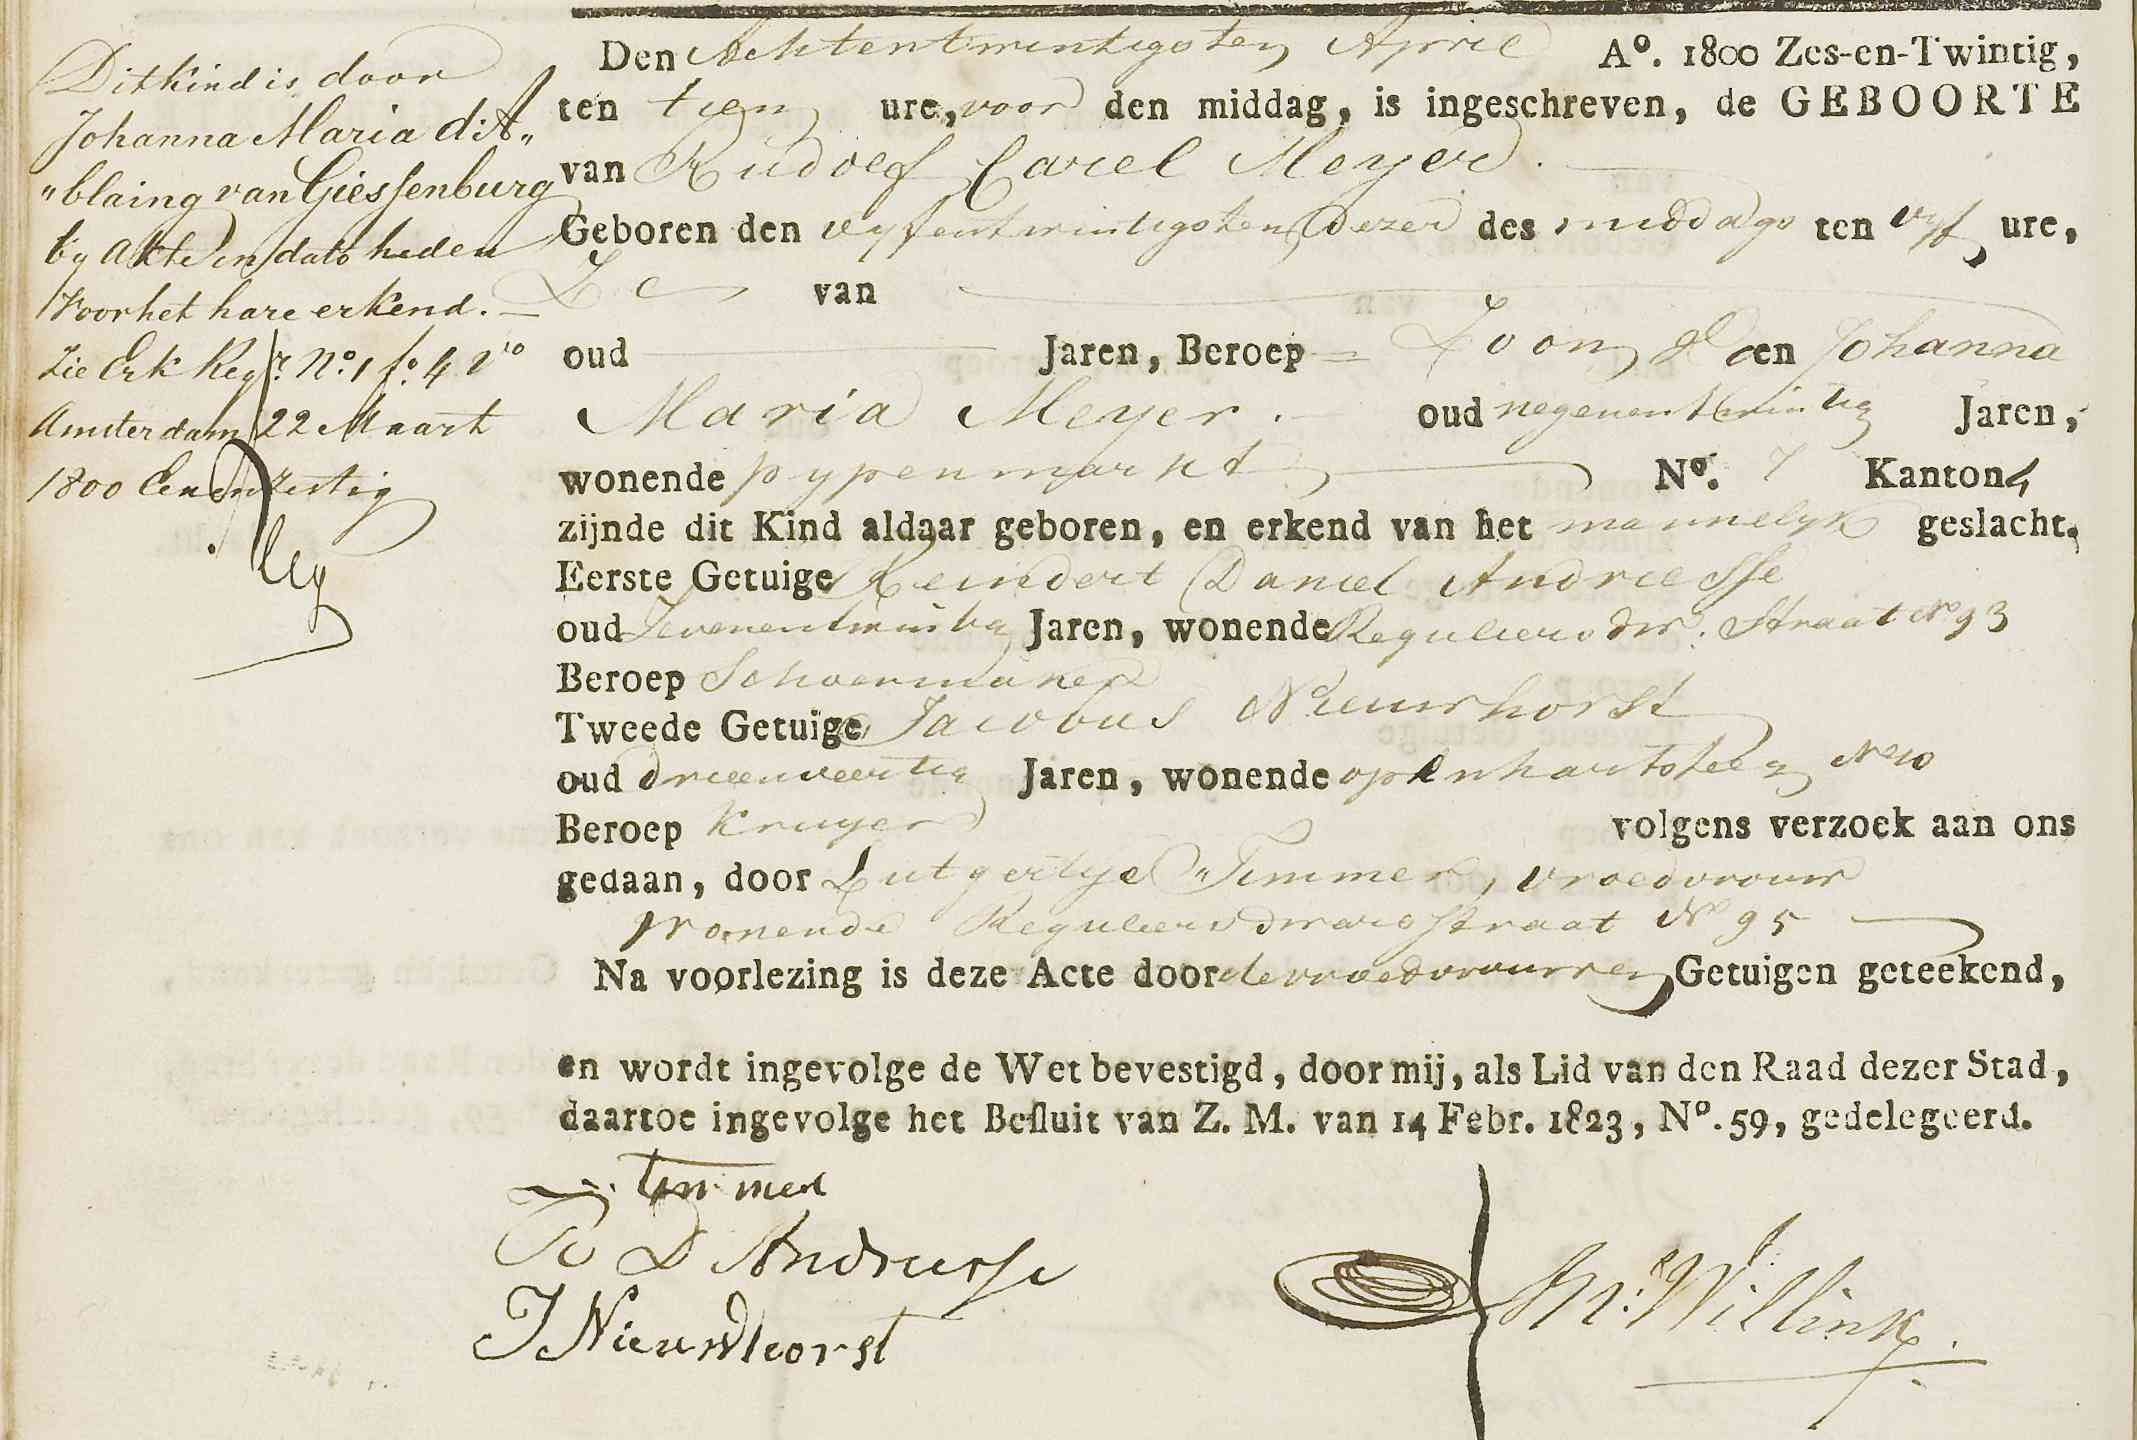 Dit kind is door
Johanna Maria dit„
„blaing van Giessenburg
by Akte in dato heden
voor het hare erkend. —
Zie Erk Regr. No. 1 fo. 4 vo
Amsterdam 22 Maart
1800 Een en zestig
Den Achtentwintigsten April Ao. 1800 Zes-en-Twintig,
ten tien ure, voor den middag, is ingeschreven, de GEBOORTE
van Rudolf Carel Meyer.
Geboren den vyfentwintigsten dezer des middags ten vyf ure,
van
oud Jaren, Beroep = Zoon en Johanna
Maria Meyer. oud negenentwintig Jaren,
wonende pypenmarkt No. 7 Kanton 4
zijnde dit Kind aldaar geboren, en erkend van het mannelyk geslacht.
Eerste Getuige Reindert Daniel Andriesse
oud Zevenentwintig Jaren, wonende Reguliers dw. Straat No 93
Beroep Schoenmaker
Tweede Getuige Jacobus Nieuwhorst
oud drieenveertig Jaren, wonende openhartsteeg No 10
Beroep Kruyer volgens verzoek aan ons
gedaan, door Lutgertye Timmer, vroedvrouw
wonende Reguliersdwarsstraat No 95
Na voorlezing is deze Acte door de vroedvrouw en Getuigen geteekend,
en wordt ingevolge de Wet bevestigd, door mij, als Lid van den Raad dezer Stad,
daartoe ingevolge het Besluit van Z. M. van 14 Febr. 1823, No. 59, gedelegeerd.
Timmer
R D Andriesse
J Nieuwhorst
Mr. Willink.